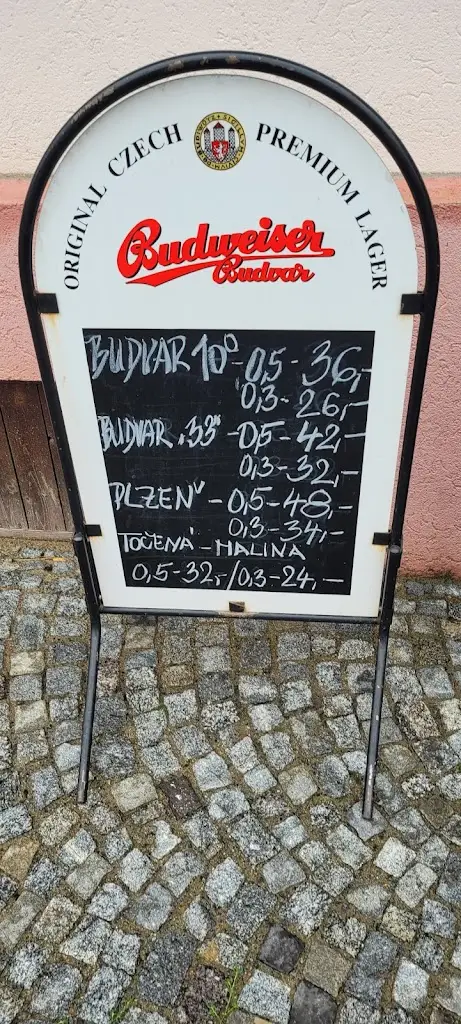 ORIGINAL CZECH PREMIUM LAGER
Budweiser
Budvar
BUDVAR 10° - 0,5 - 36,-
0,3 - 26,-
BUDVAR "33" - 0,5 - 42,-
0,3 - 32,-
PLZEŇ - 0,5 - 48,-
0,3 - 34,-
TOČENÁ - MALINA
0,5 - 32,- / 0,3 - 24,-